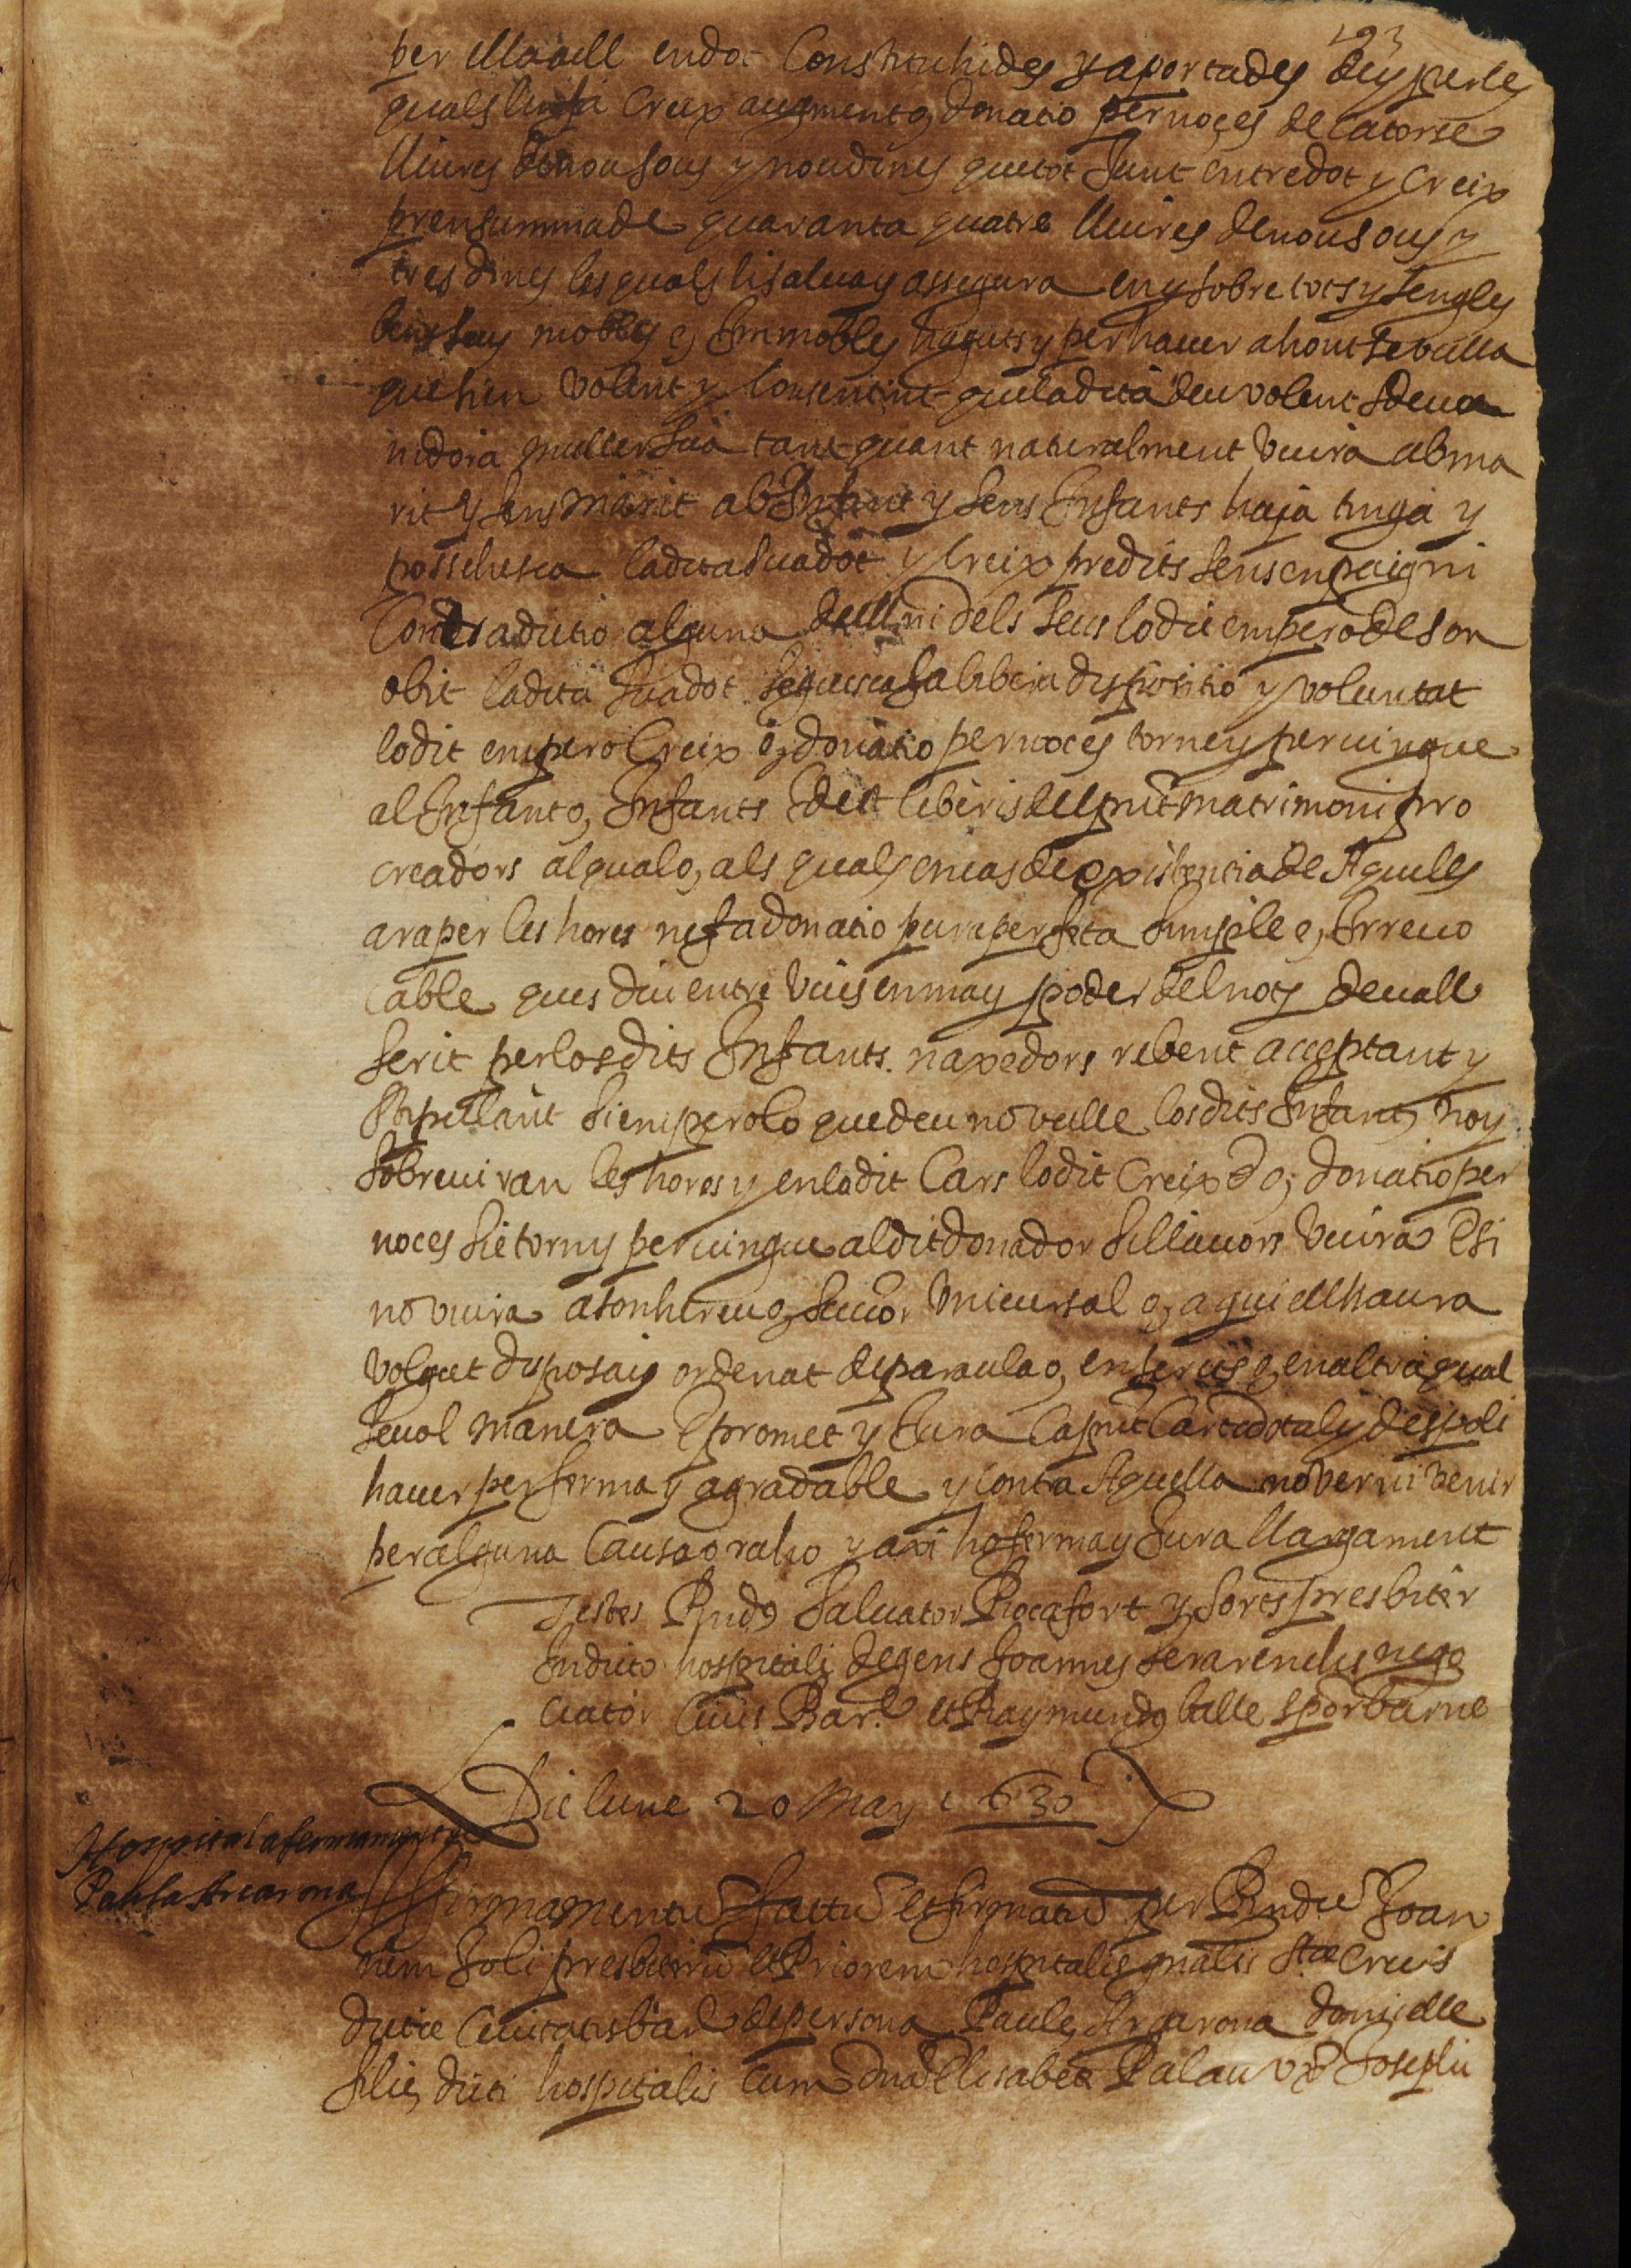 193
per ella a ell en dot Constituhides y aportades Euy per les
quals li fa Creix augment o, donatio per noçes de Catorse
lliures denou sous y nou dines que tot Junt entre dot y Creix
pren summa de quaranta quatre lliures denou sous y
tres dines les quals li salva y assegura en y sobre tots y sengles
bens seus mobles e, Immobles haguts y per haver ahont se vulla
que sien Volent y Consentint que la dita deu volent sdeve
nidora muller sua tant quant naturalment viura ab ma
rit y sens marit ab Infant y sens Infants haja tinga y
possehesca la dita sua dot y Creix predits sens empaig ni
Contradictio alguna de ell ni dels seus lo die empero de son
obit la dita sua dot seguesca sa libera dispositio y voluntat
lo dit empero Creix o, donatio per noces torne y pervingue
al Infant o, Infants del present matrimoni pro
creadors al qual o, als quals en cas de existentia de Aquells
ara per les hores ne fa donatio pura perfeta simple e, Irrevo
cable ques diu entre vius en ma y poder del noty devall
scrit per los dits Infants naxedors rebent acceptant y
stipulant si empero lo que deu no vulle los dits Infants noy
sobreviuran les hores y en lo dit Cars lo dit Creix o, donatio per
noces sie torn y pervingue al dit donador si llavors viura E si
no viura a son hereu o, succor universal o, a qui ell haura
volgut disposaig ordenat de paraula o, en scrits o, en altra qual
sevol manera E promet y Jura la pnt Carta dotal y despoli
haver per ferma y agradable y contra Aquella no ver ni venir
per alguna Causa o rahó y axi ho ferma y Jura llargament
Testes Rnds Salvator Rocafort y sorts presbiter
In dicto hospitali degens Joannes serarendis nego
ciator Civis Bar. et Raymundo batlle sporbarne
Die lune 20 May 1630
Hospital afermament de
Paula Arcarona
Affirmamentu factu et firmatu per Rndu Joan
nem Joli presbiteru et Priorem hospitalis gnalis Stae Crucis
dicte Civitatis bar de persona Paule Arcarona domicelle
filie dicti hospitalis Cum dna Elisabet Palau vx Josephi